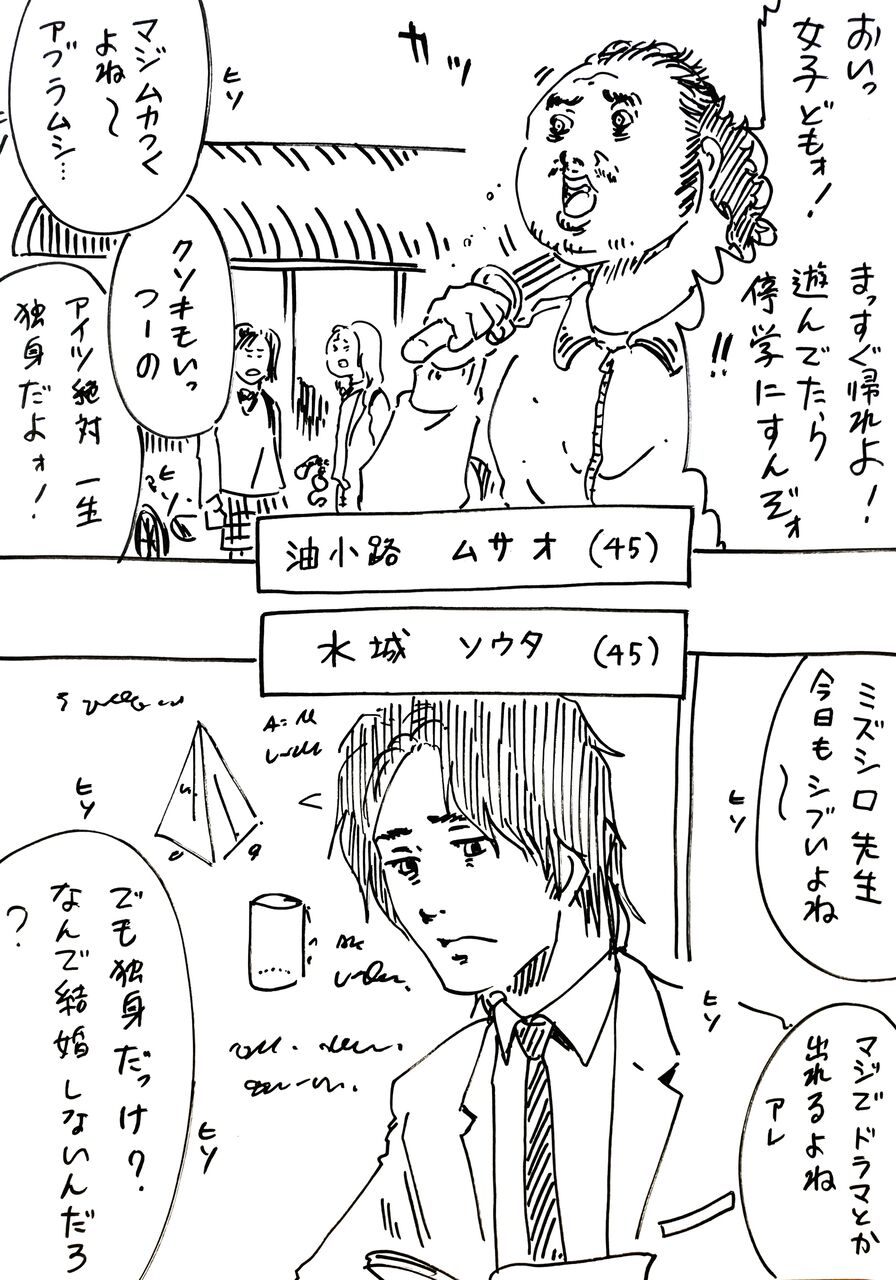 おいっ
女子どもォ!
まっすぐ帰れよ!
遊んでたら
停学にすんぞォ
!!
カッ
ヒソ
マジムカつく
よね〜
アブラムシ…
クソキモいっ
つーの
アイツ絶対一生
独身だよォ!
ヒソ
油小路 ムサオ (45)
水城 ソウタ (45)
ミズシロ先生
今日もシブいよね
〜
ヒソ
マジでドラマとか
出れるよね
アレ
ヒソ
ヒソ
でも独身だっけ?
なんで結婚しないんだろ
?
ヒソ